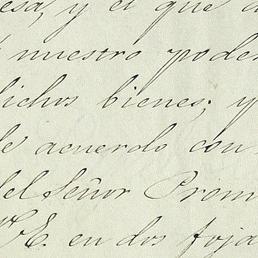 esa, y el que
nuestro poder
dichos bienes; y
de acuerdo con
del Señor Prom
V. E. en dos foja